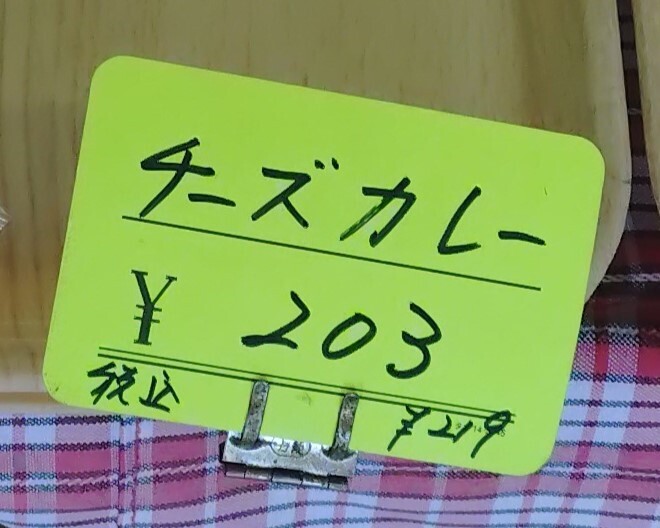 チーズカレー
¥ 203
税込 ¥219